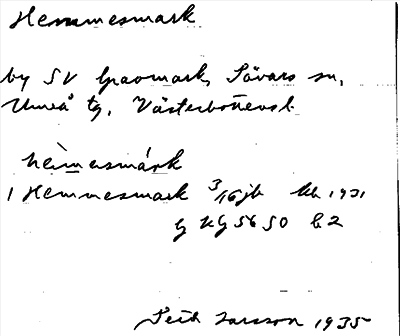 Hemmesmark
by SV Gravmark, Sävars sn,
Umeå tg, Västerbottens l.
hèmesmárk
1 Hemmesmark 3/16 jb Kh 1931
G KG 56 50 b 2
Seth Larsson 1935